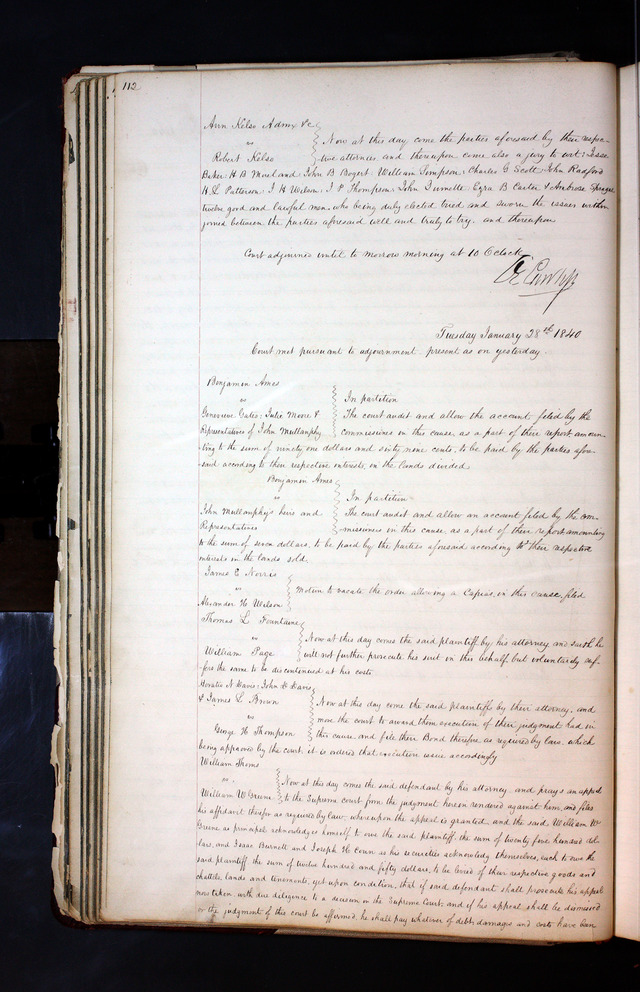 112
Ann Kelso Admx &c
vs
Now at this day come the parties aforesaid by their respec-
Robert Kelso
tive attornies and thereupon come also a jury to wit: Isaac
Baker: H B Moreland: John B Bogert: William Simpson: Charles G Scott: John Radford
H L Patterson: J H Wilson: J P Thompson: John Gunnelle: Ezra B Carter & Ambrose
twelve good and lawful men, who being duly elected tried and sworn the issues within
joined between the parties aforesaid well and truly to try. and thereupon
Court adjourned until to morrow morning at 10 OClock
Tuesday January 28th 1840
Court met pursuant to adjournment present as on yesterday.
Benjamin Ames
vs
In partition
Genevieve Gates: Julie Moore &
The court audit and allow the account filed by the
Representatives of John Mullanphy
commissioners in this cause, as a part of their report amoun-
ting to the sum of ninety one dollars and sixty nine cents, to be paid by the parties afore-
said according to their respective interests, in the lands divided.
Benjamin Ames
vs
In partition
John Mullanphy's heirs and
The court audit and allow an account filed by the com-
Representatives
missioners in this cause, as a part of their report amounting
to the sum of seven dollars, to be paid by the parties aforesaid according to their respective
interests in the lands sold.
James E Norris
vs
Motion to vacate the order allowing a Capias, in this cause, filed
Alexander H Wilson
Thomas L Fountaine
vs
Now at this day comes the said plaintiff by his attorney and saith he
William Page
will not further prosecute his suit in this behalf but voluntarily suf-
fers the same to be discontinued at his costs
Horatio N Davis: John D Davis
& James L Brown
Now at this day come the said plaintiffs by their attorney, and
vs
move the court to award them execution of their judgment had in
George H Thompson
this cause, and file their Bond therefor, as required by law, which
being approved by the court, it is ordered that execution issue accordingly
William Thoms
vs.
Now at this day comes the said defendant by his attorney and prays an appeal
William W Greene
to the Supreme court from the judgment herein rendered against him, and files
his affidavit therefor as required by law: whereupon the appeal is granted, and the said William W
Greene as principal acknowledges himself to owe the said plaintiff, the sum of twenty five hundred dol-
lars, and Isaac Burnett and Joseph H Conn as his securities acknowledge themselves, each to owe the
said plaintiff the sum of twelve hundred and fifty dollars, to be levied of their respective goods and
chattels, lands and tenements, yet upon condition, that if said defendant shall prosecute his appeal
now taken with due diligence to a decision in the Supreme Court: and if his appeal shall be dismissed
or the judgment of this court be affirmed, he shall pay whatever of debt, damages and costs have been